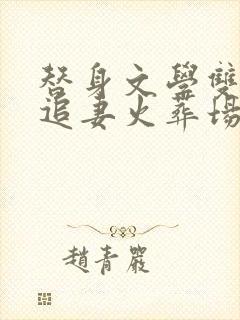 替身文學雙
追妻火葬場
趙青嚴